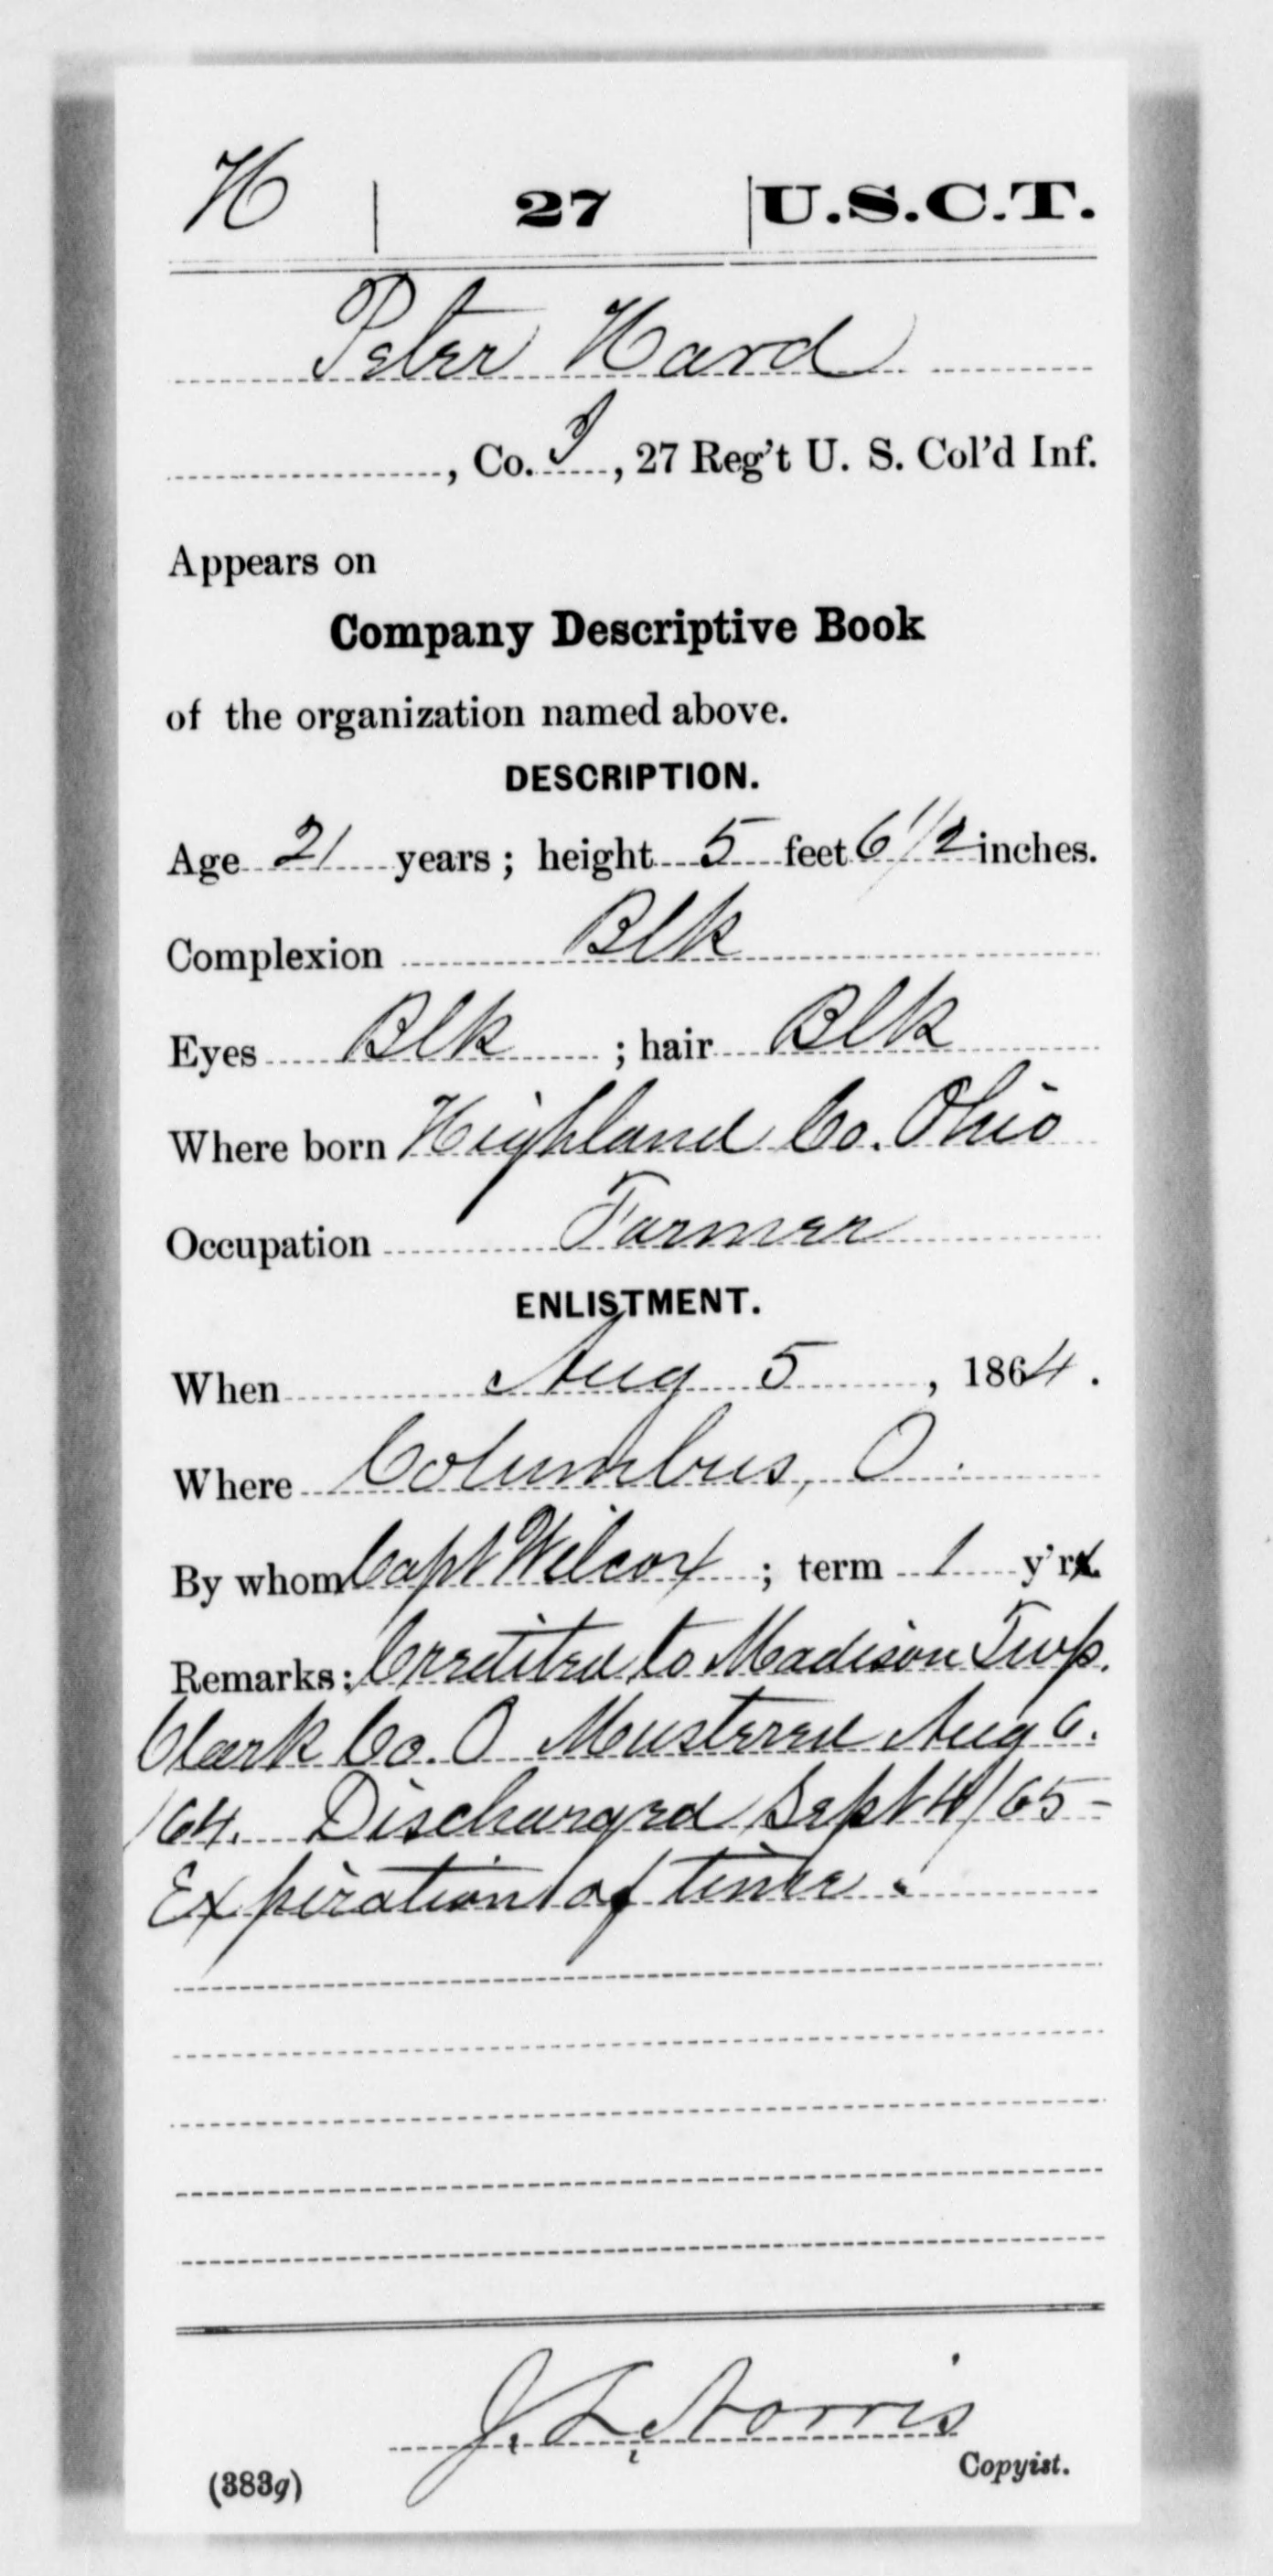 H | 27 | U.S.C.T.
Peter Hard
, Co. I, 27 Reg't U. S. Col'd Inf.
Appears on
Company Descriptive Book
of the organization named above.
DESCRIPTION.
Age 21 years; height 5 feet 6 1/2 inches.
Complexion Blk
Eyes Blk ; hair Blk
Where born Highland Co. Ohio
Occupation Farmer
ENLISTMENT.
When Aug 5, 1864.
Where Columbus, O.
By whom Capt Wilcox ; term 1 y'r
Remarks: Credited to Madison Twp.
Clark Co. O Mustered Aug 6.
/64. Discharged Sept 4/65-
Expiration of time.
J. L. Norris
Copyist.
(383g)